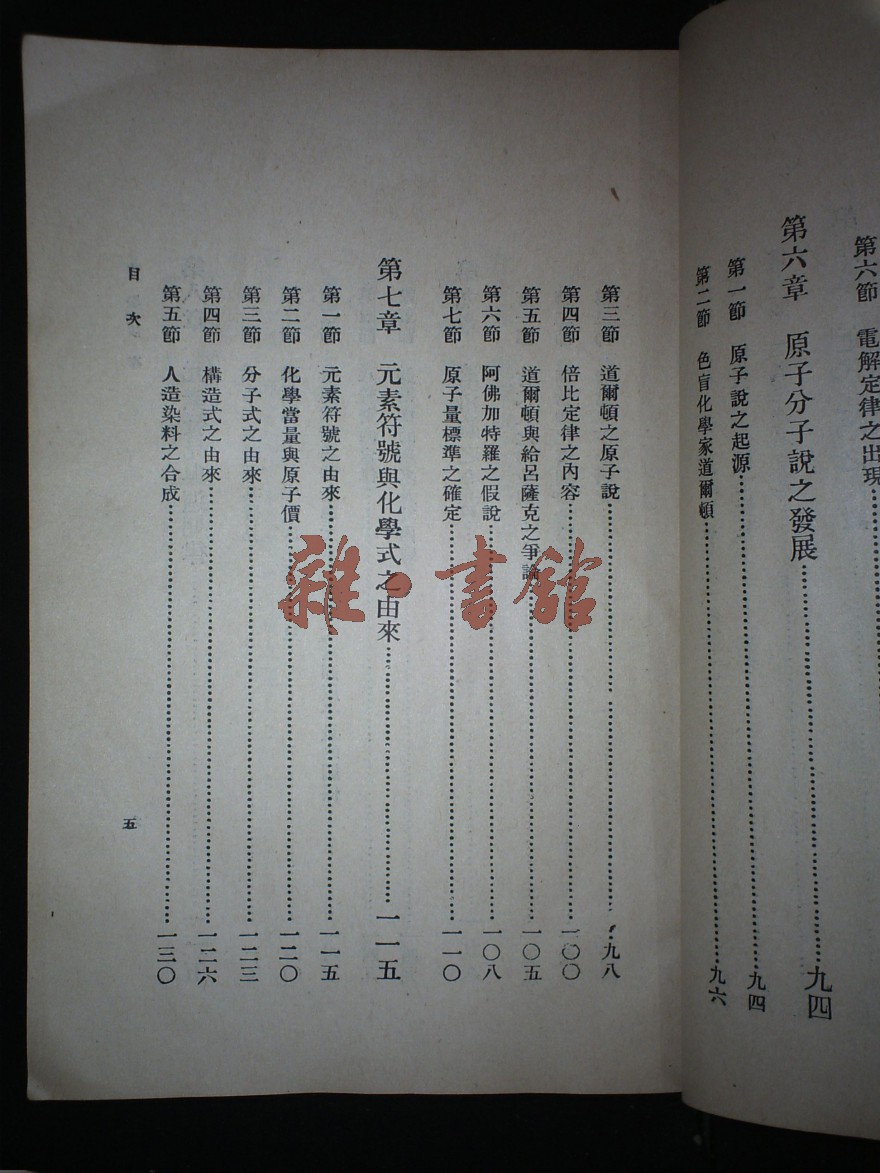 第六節　電解定律之出現
第六章　原子分子說之發展……九四
第一節　原子說之起源……九四
第二節　色盲化學家道爾頓……九六
第三節　道爾頓之原子說……九八
第四節　倍比定律之內容……一〇〇
第五節　道爾頓與給呂薩克之爭論……一〇五
第六節　阿佛加特羅之假說……一〇八
第七節　原子量標準之確定……一一〇
第七章　元素符號與化學式之由來……一一五
第一節　元素符號之由來……一一五
第二節　化學當量與原子價……一二〇
第三節　分子式之由來……一二三
第四節　構造式之由來……一二六
第五節　人造染料之合成……一三〇
目次
五
雜·書館